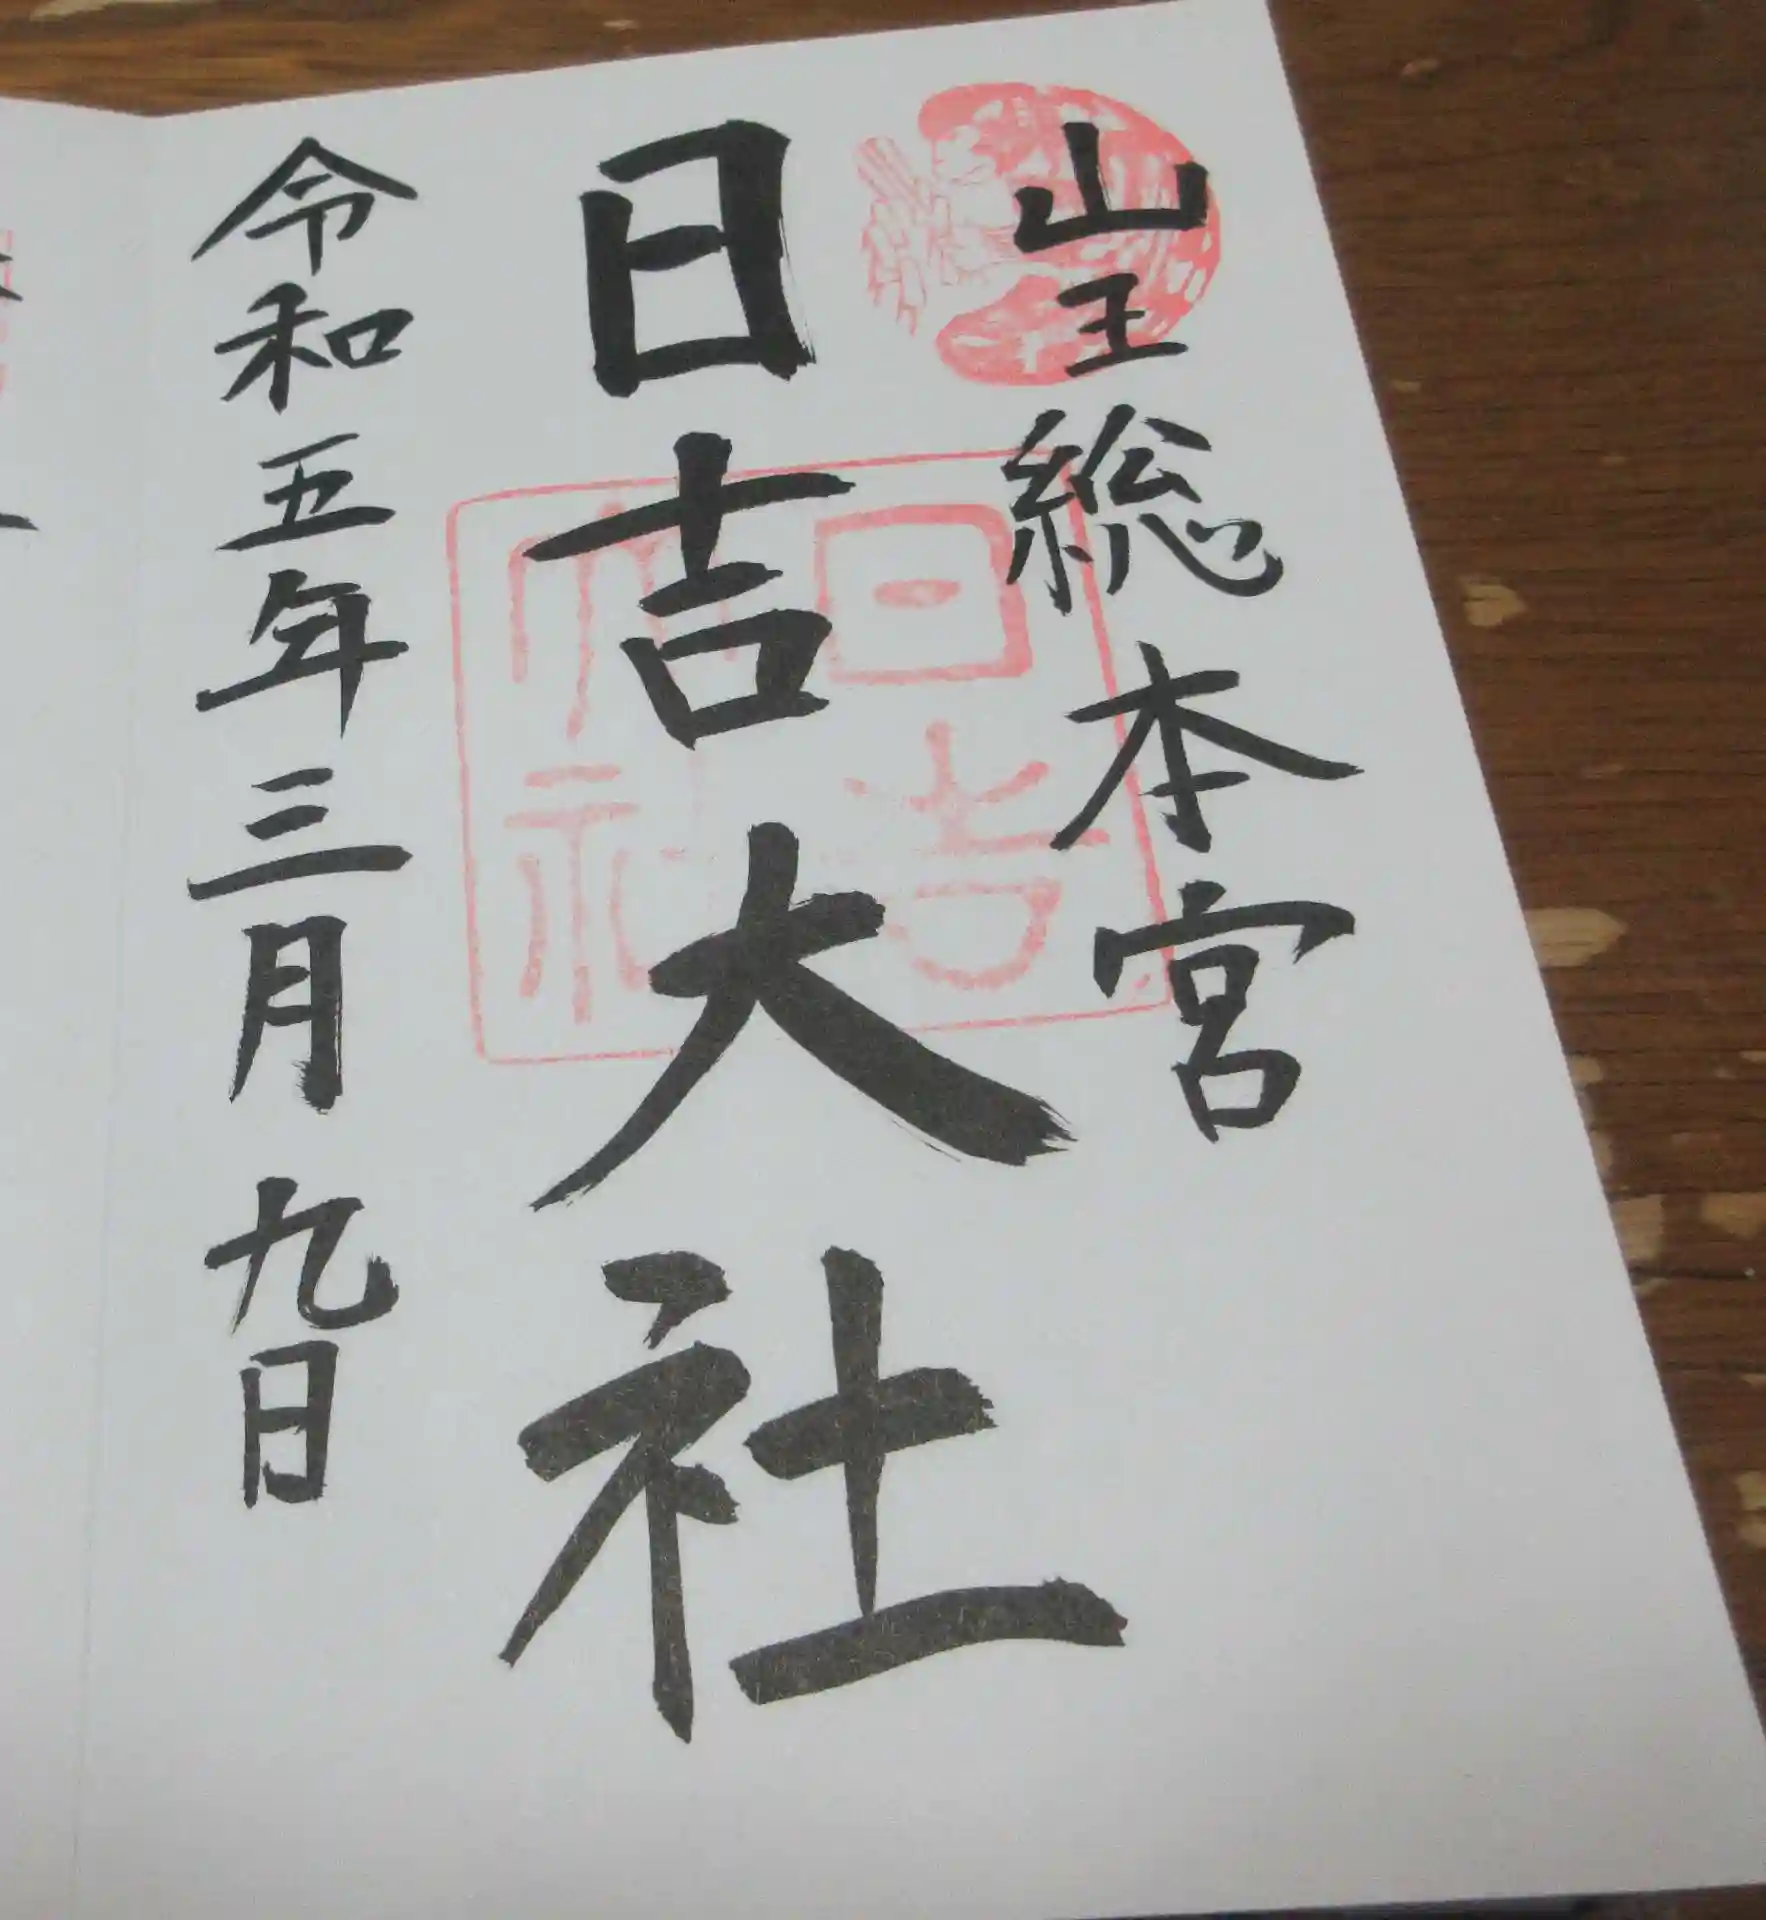 山王総本宮
日吉大社
日吉大社
令和五年三月九日